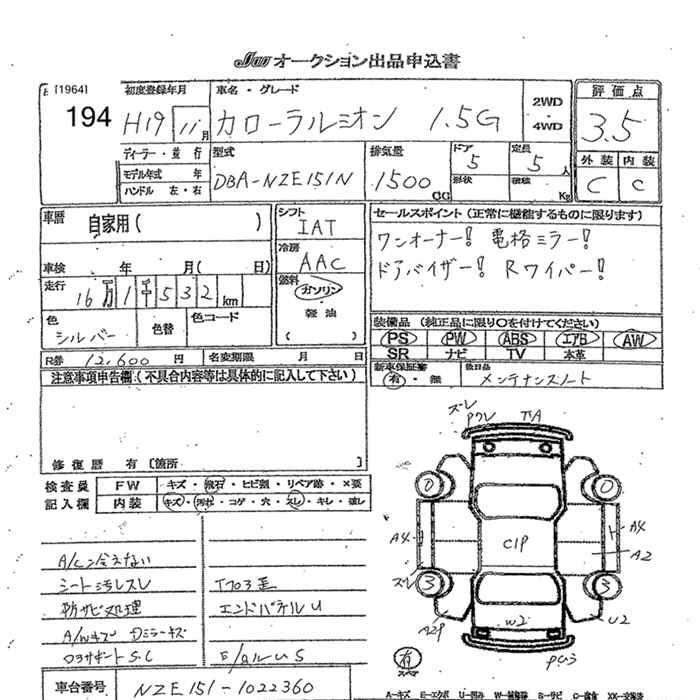 JU オークション出品申込書
[1964]
194
初度登録年月
H19 11月
車名・グレード
カローラルミオン 1.5G
2WD
4WD
評価点
3.5
外装 内装
C C
ディーラー・並行
モデル年式 年
ハンドル 左・右
型式
DBA-NZE151N
排気量
1500 CC
ドア
5
形状
定員
5人
積載 Kg
車歴
自家用( )
車検 年 月( 日)
走行
16万1千532km
色
シルバー
色替
色コード
シフト
IAT
冷房
AAC
燃料
ガソリン
軽油
( )
セールスポイント(正常に機能するものに限ります)
ワンオーナー! 電格ミラー!
ドアバイザー! Rワイパー!
装備品(純正品に限り○を付けてください)
PS PW ABS エアB AW
SR ナビ TV 本革
新車保証書
有・無
後日品
メンテナンスノート
R券 12,600円
名変期限 月 日
注意事項申告欄(不具合内容等は具体的に記入して下さい)
修復歴 有 〔箇所 〕
検査員
記入欄
FW キズ・飛石・ヒビ割・リペア跡・×要
内装 キズ・汚れ・コゲ・穴・スレ・キレ・破レ
A/C冷えない
シート汚レスレ
防サビ処理
A/Wキズ Dミラーキズ
ロアサポートS.C
エンドパネルU
車台番号 NZE151-1022360
ズレ
0 0
C1P
A4 A4
A2
ズレ
3 3
W2
A2P
U2
有
スペア
A-キズ E-エクボ U-凹み W-補修跡 S-サビ C-腐食 XX-交換済